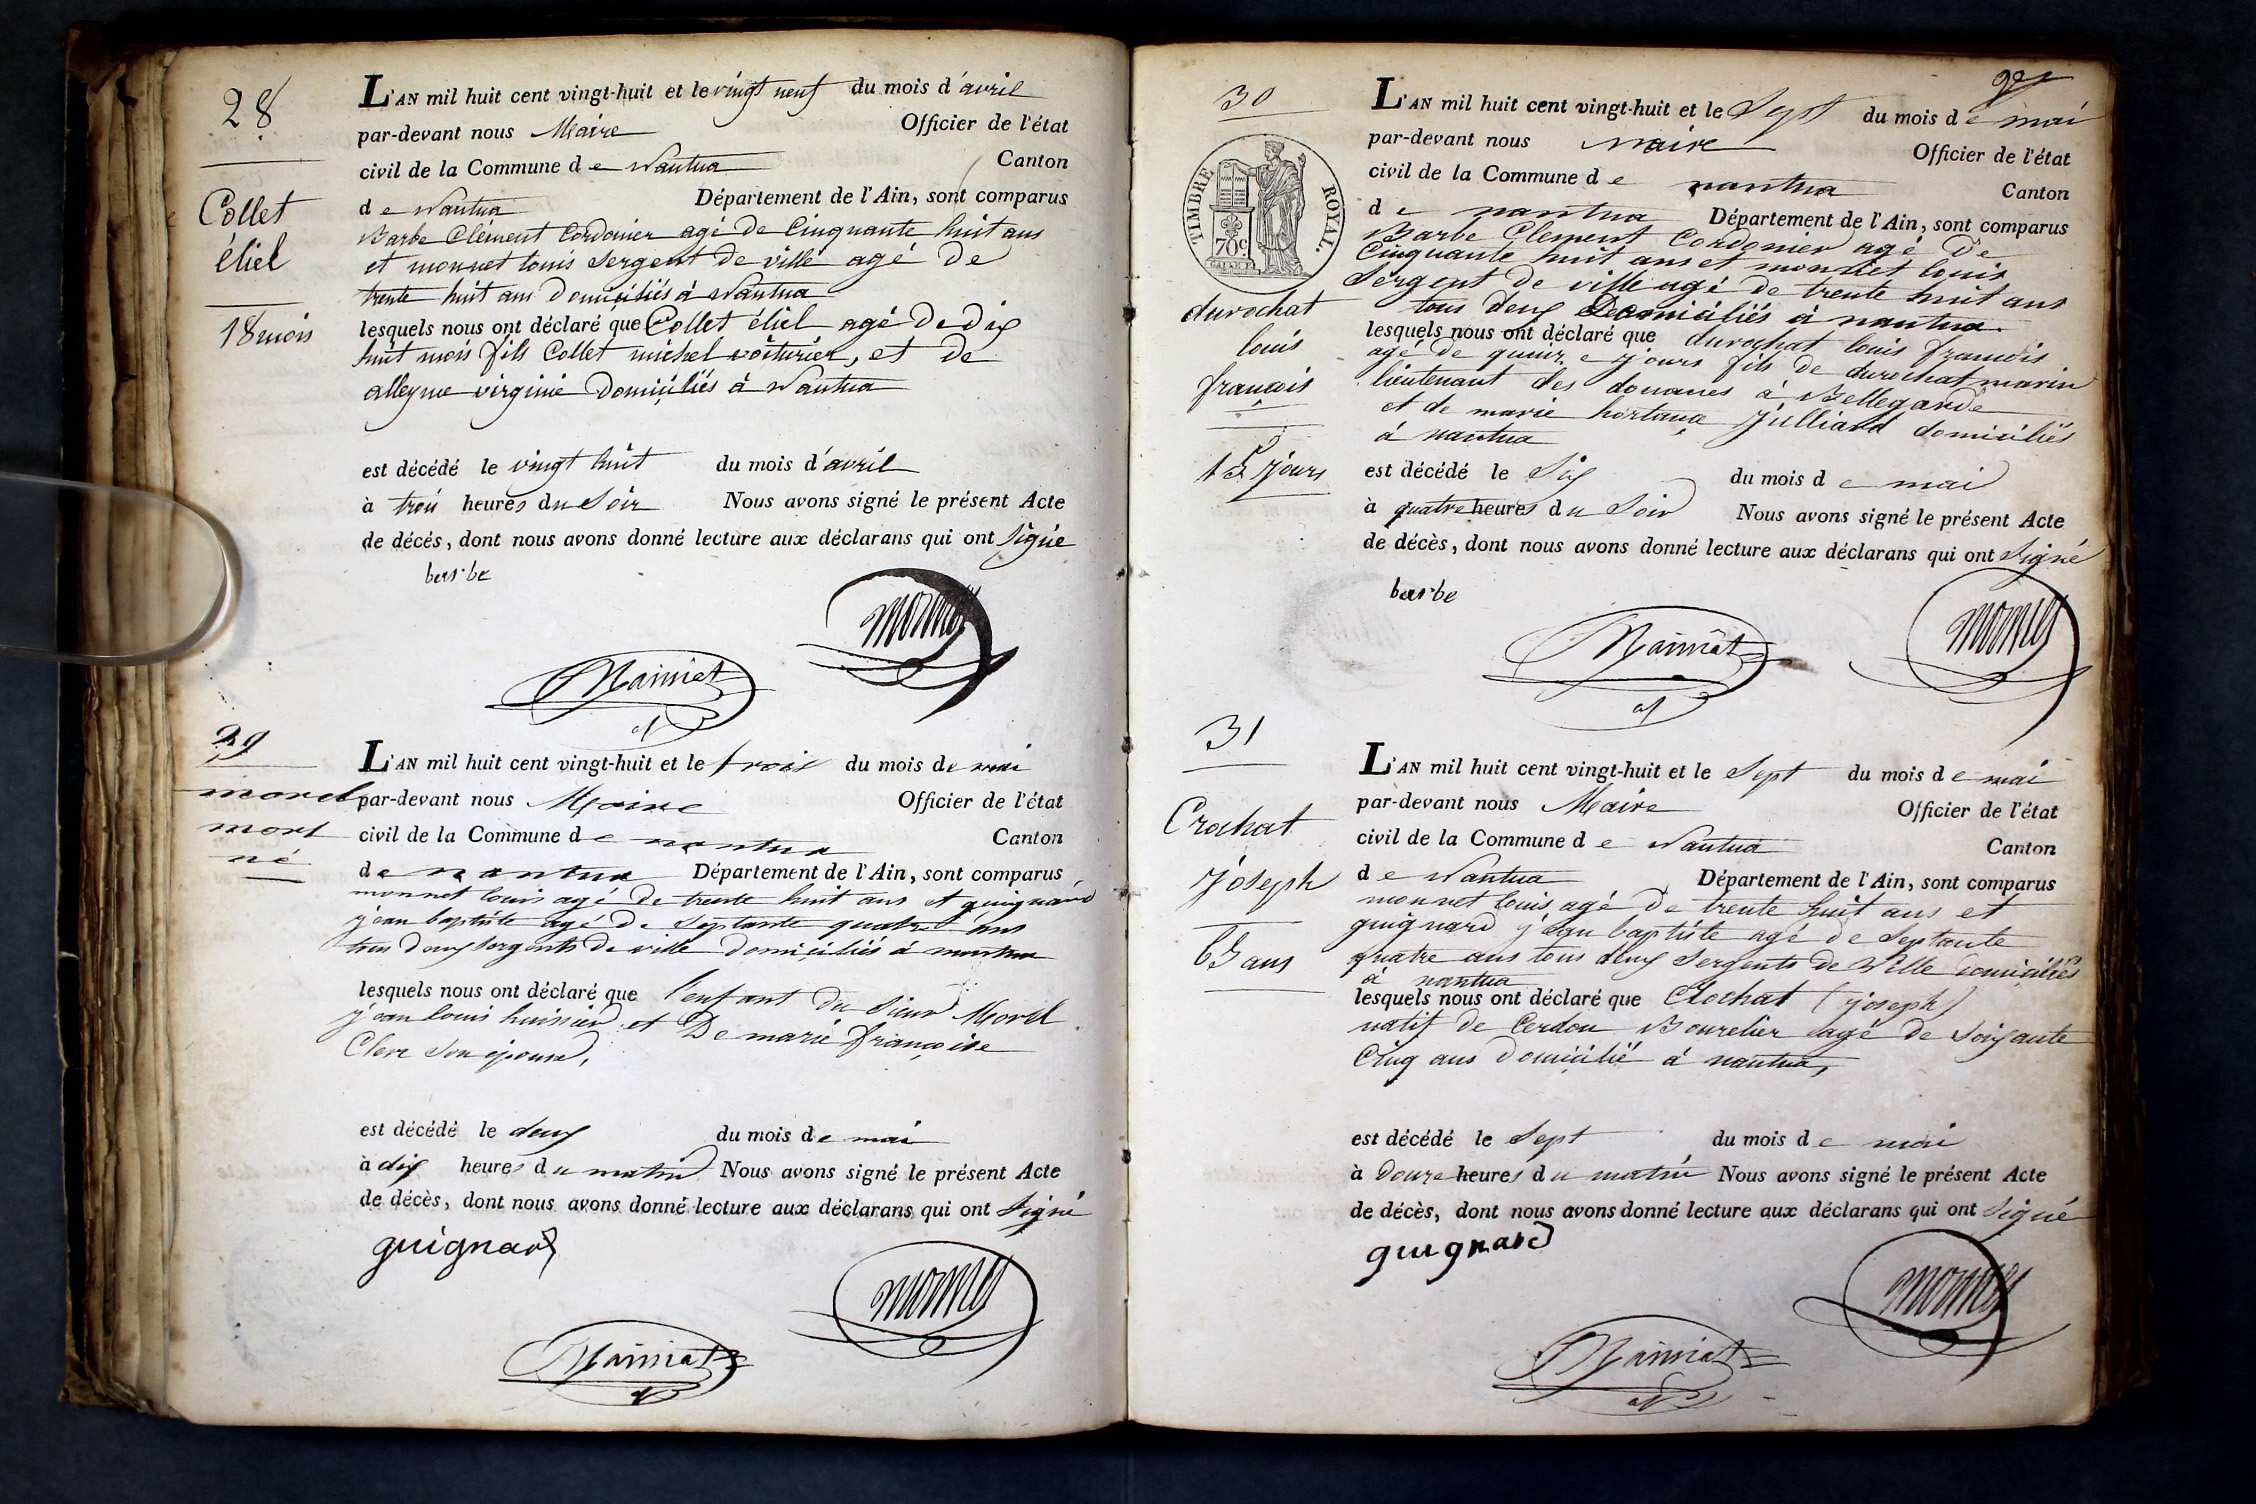 28
Collet
éliel
18 mois
L'AN mil huit cent vingt-huit et le vingt neuf du mois d'avril
par-devant nous Maire Officier de l'état
civil de la Commune de Nantua Canton
de Nantua Département de l'Ain, sont comparus
Barbe Clement Cordonier agé de Cinquante huit ans
et monnet louis Sergent de ville agé de
trente huit ans Domiciliés à Nantua
lesquels nous ont déclaré que Collet éliel agé de dix
huit mois fils Collet michel voiturier, et de
alleyne virginie Domiciliés à Nantua
est décédé le vingt huit du mois d'avril
à trois heures du Soir Nous avons signé le présent Acte
de décés, dont nous avons donné lecture aux déclarans qui ont Signé
barbe
29
morel
mort
né
L'AN mil huit cent vingt-huit et le trois du mois de mai
par-devant nous Maire Officier de l'état
civil de la Commune de nantua Canton
de nantua Département de l'Ain, sont comparus
monnet louis agé de trente huit ans et guignard
jean baptiste agé de Septante quatre ans
tous deux Sergents de ville domiciliés à nantua
lesquels nous ont déclaré que l'enfant du Sieur Morel
jean louis huissier et De marie françoise
Clerc Son épouse,
est décédé le deux du mois de mai
à dix heures du matin Nous avons signé le présent Acte
de décès, dont nous avons donné lecture aux déclarans qui ont Signé
guignard
30
TIMBRE ROYAL.
70c
durochat
louis
françois
15 jours
L'AN mil huit cent vingt-huit et le Sept du mois de mai
par-devant nous maire Officier de l'état
civil de la Commune de nantua Canton
de nantua Département de l'Ain, sont comparus
Barbe Clement Cordonier agé De
Cinquante huit ans et monnet louis
Sergent de ville agé de trente huit ans
tous deux Domiciliés à nantua
lesquels nous ont déclaré que durochat louis francois
agé de quinze jours fils de durochat marin
lieutenant des douanes à Bellegarde
et de marie Julliard domiciliés
à nantua
est décédé le Six du mois de mai
à quatre heures du Soir Nous avons signé le présent Acte
de décès, dont nous avons donné lecture aux déclarans qui ont Signé
barbe
31
Crochat
Joseph
65 ans
L'AN mil huit cent vingt-huit et le Sept du mois de mai
par-devant nous Maire Officier de l'état
civil de la Commune de Nantua Canton
de Nantua Département de l'Ain, sont comparus
monnet louis agé de trente huit ans et
guignard jean baptiste agé de Septante
quatre ans tous deux Sergents de Ville domiciliés
à nantua
lesquels nous ont déclaré que Crochat (joseph)
natif de Cerdon Bourelier agé de Soixante
Cinq ans domicilié à nantua,
est décédé le Sept du mois de mai
à Douze heures du matin Nous avons signé le présent Acte
de décès, dont nous avons donné lecture aux déclarans qui ont Signé
guignard